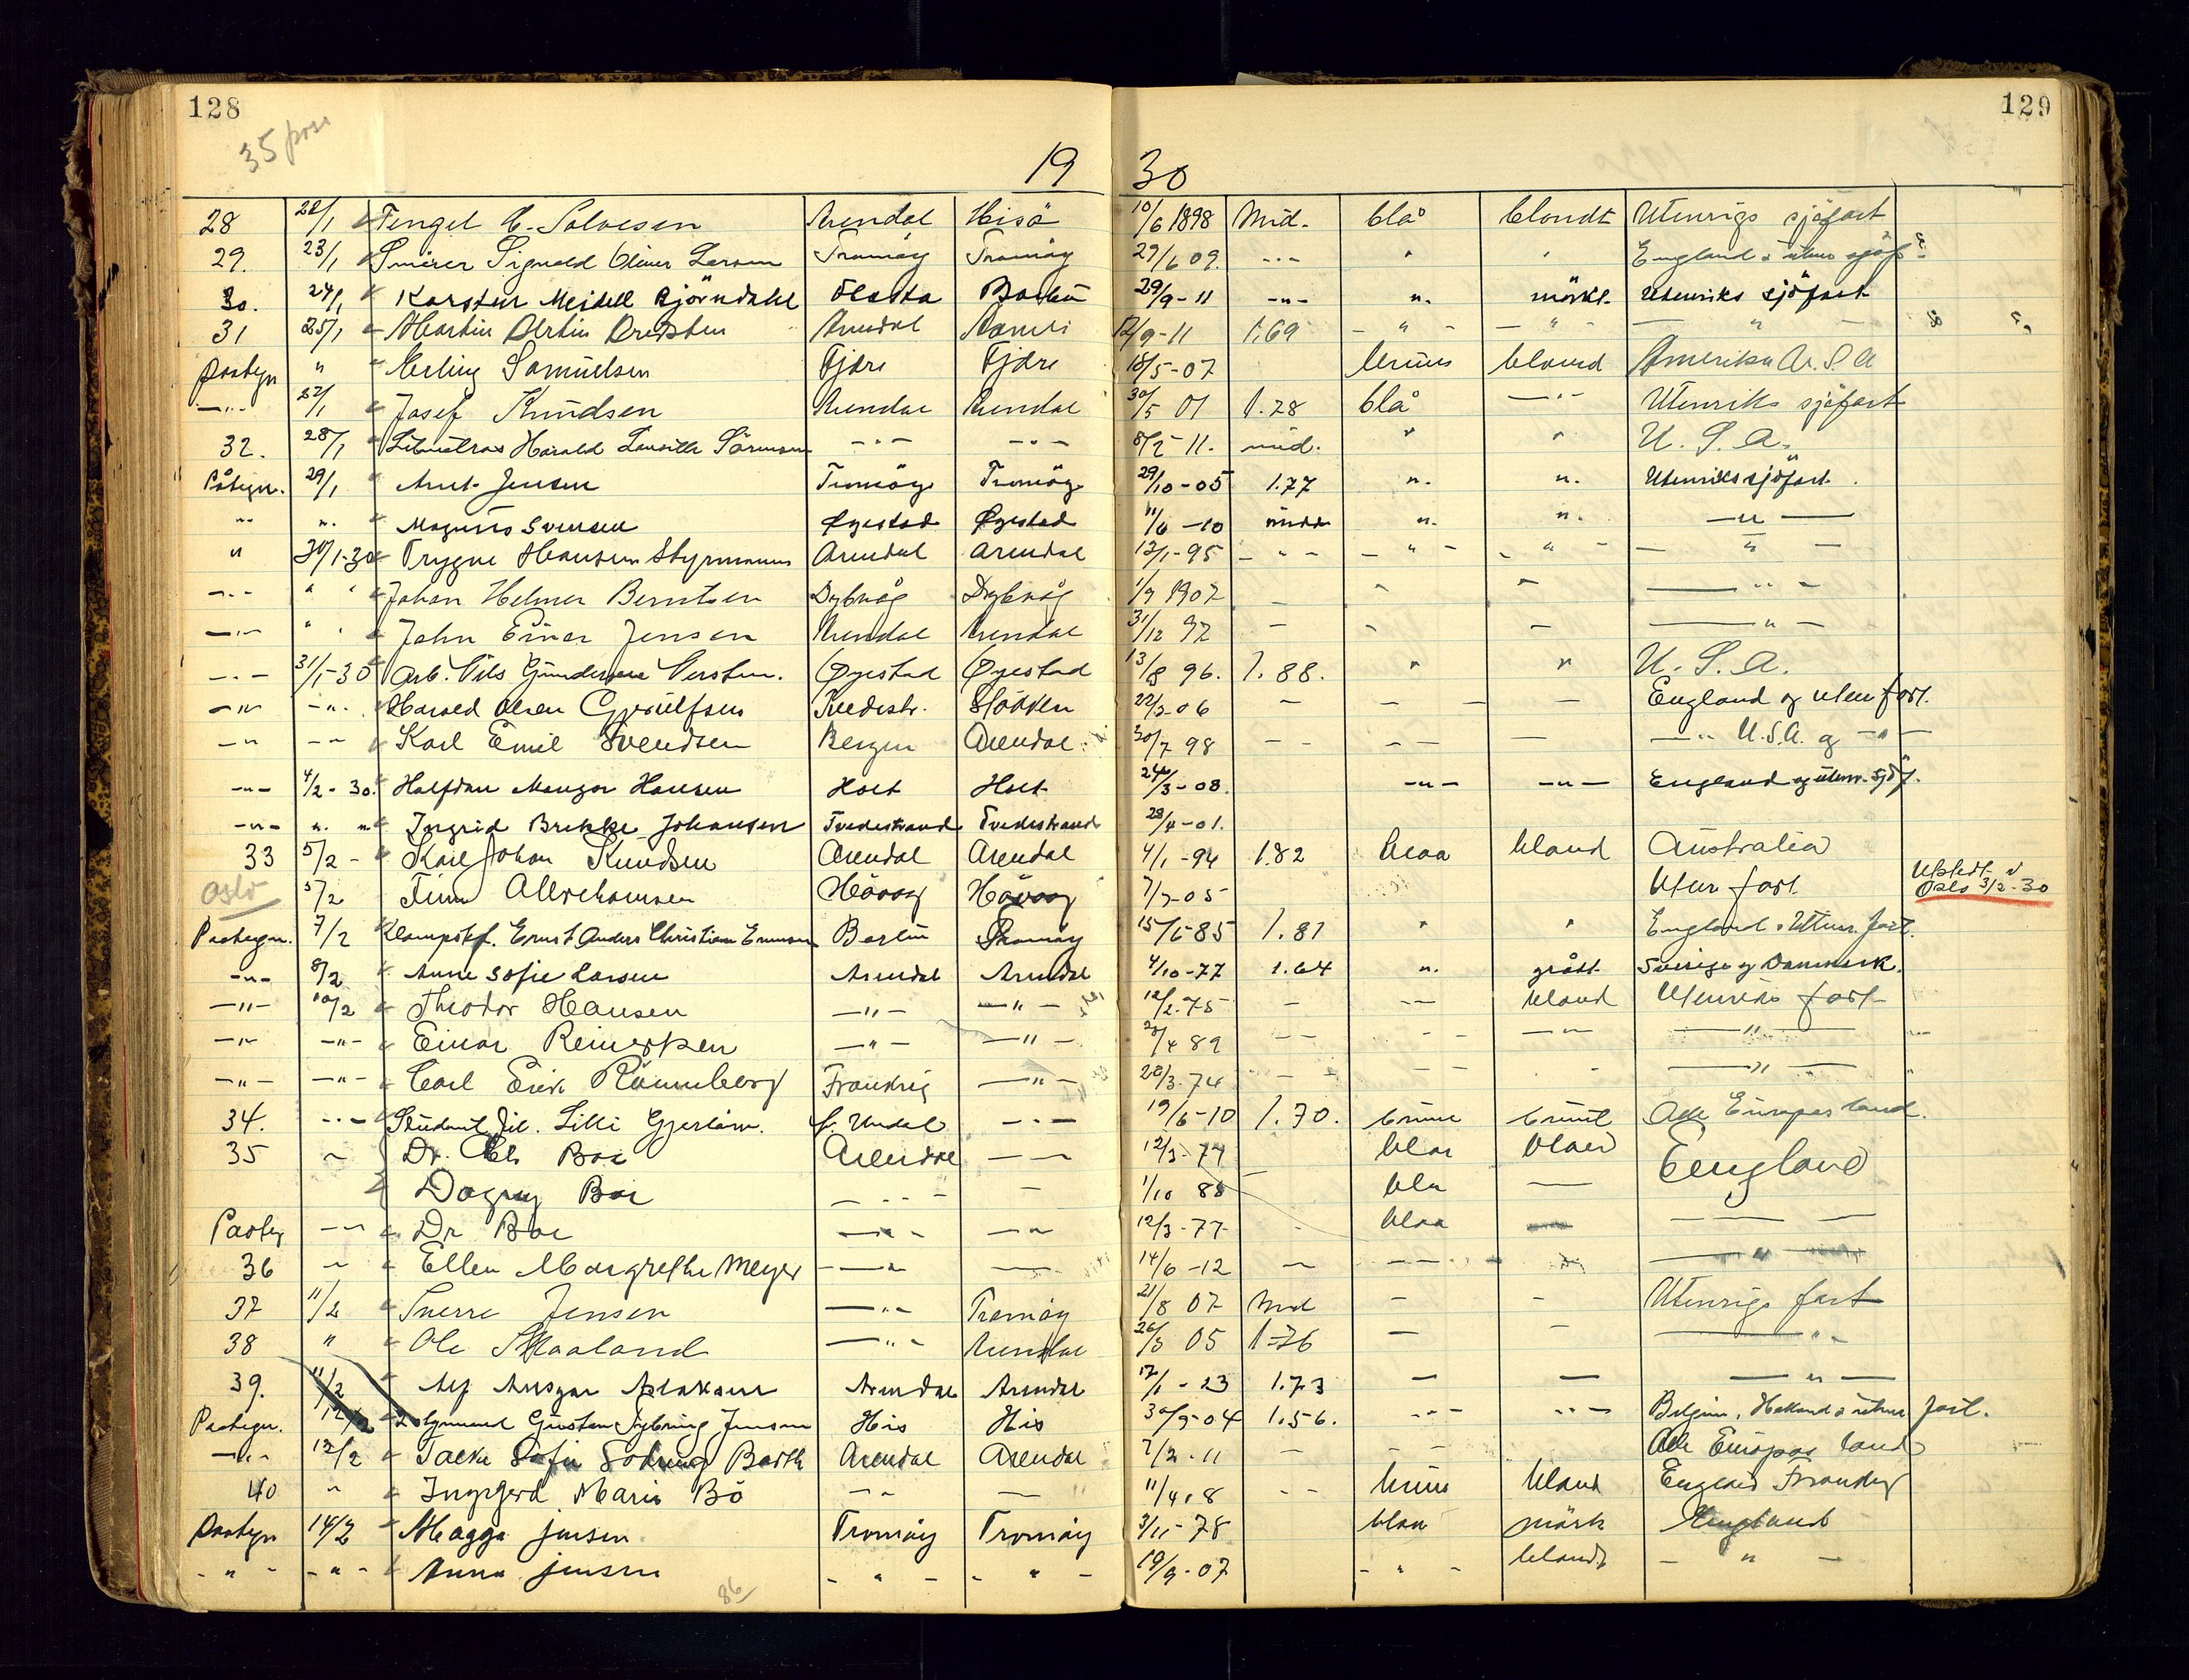 128
129
35 pers
19 30
28 22/1 Tengel C. Salvesen Arendal Hisö 10/6 1898 Mid. blå blondt Utenrigs sjöfart
29. 23/1 Sigvald Olaus Larsen Tromöy Tromöy 29/6 09. -"- " " England & utenr sjöf
30. 24/1 Karsten Meidell Björndahl Barbu 29/9-11 -"- ". mörkt. Utenriks sjöfart
31 25/1 Martin Arendal 12/9-11 1.69 - " - - " - - " -
Paategn " Erling Samuelsen Fjære Fjære 18/5-07 brune blond Amerika U.S.A
-"- 27/1 Josef Knudsen Arendal Arendal 30/5 01 1.78 blå -"- Utenriks sjöfart
32. 28/1 Harald -"- -"- mid. " " U.S.A.
Påtegn. 29/1 Arnt Jensen Tromöy Tromöy 29/10-05 1.77 ". ". Utenriks sjöfart.
-"- ". Magnus Svensen Øyestad Øyestad 11/6-10 midd ". ". -"-
" 30/1-30 Trygve Hansen Styrmann Arendal Arendal 12/1-95 - " - - " - - " - - " -
-"- " " Johan Helmer Berntsen Dybvåg Dybvåg 1/9 1907 - " " -"-
-"- " " John Einar Jensen Arendal Arendal 31/12 97 - " - -"-
-"- 31/1-30 Arb. Nils Gundersen Øyestad Øyestad 13/8 96. 1.88. " " U.S.A.
-"- -"- Harald Olsen Gjerulfsen Tvedestr. 22/3-06 - - - England og uten fart.
-"- -"- Karl Emil Svendsen Bergen Arendal 30/7 98 -- -- - -"- U.S.A. og -"-
-"- 4/2-30. Halfdan Mangor Hansen Holt Holt 24/3-08. -"- -"- England og utenr. sjöf.
-"- ". " Ingrid Brekke Johansen Tvedestrand Tvedestrand 28/4-01.
33 5/2- Karl Johan Knudsen Arendal Arendal 4/1-94 1.82 blaa blond Australia
Oslo 5/2 Finn Abrahamsen Hövåg Hövåg 7/7-05 Uten fart. Utstedt i
Oslo 3/2-30
Paategn. 7/2 Ernst Anders Christian Berlin Tromöy 15/6-85 1.81 " " England & Utenr. fart.
-"- 8/2 Anne Sofie Larsen Arendal Arendal 4/10-77 1.64 ". grått Sverige og Danmark.
-"- 10/2 Theodor Hansen -"- -"- 12/2.75 - -- blond Utenriks fart
-"- -"- Einar Reinertsen -"- -"- 29/4 89 -- -- -"- -"-
-"- -"- Carl Erik Rönneberg Frankrig -"- 28/3.74 - - -- - -"-
34. -"- Student Lilli Gjerløw. -"- 19/6-10 1.70. brune brunt Alle Europas land.
35 " Dr. Boe Arendal -- 12/3-77 blaa blond England
Dagny Boe -"- - 1/10 88 bla -
Paateg -"- Dr Boe -"- -"- 12/3-77- - blaa - -
36 " Ellen Margrethe Meyer -"- - 14/6-12 - -- -"-
37 11/2 Sverre Jensen -"- Tromöy 21/8 07 Mid - - Utenrigs fart
38 " Ole Skaaland -"- Arendal 26/3 05 1-76 - - -"-
39. 11/2 Alf Ansgar Aslaksen Arendal Arendal 17/1-23 1.73 - - -"-
Paategn. 12/2 Gustav Jensen His His 30/9-04 1.56. -"- -"- Belgien, Holland & utenr fart.
-"- 12/2 Sofie Barth Arendal Arendal 7/2-11 - - - Alle Europas land
40 " Ingegerd Marie Bö -- - " 11/4.8 -- brune blond England Frankrig
Paategn 14/2 Magga Jensen Tromöy Tromöy 3/11-78 blaa mörk England
-"- -"- Anna Jensen - " - - " - 19/9-07 - " - blondt - " -
86